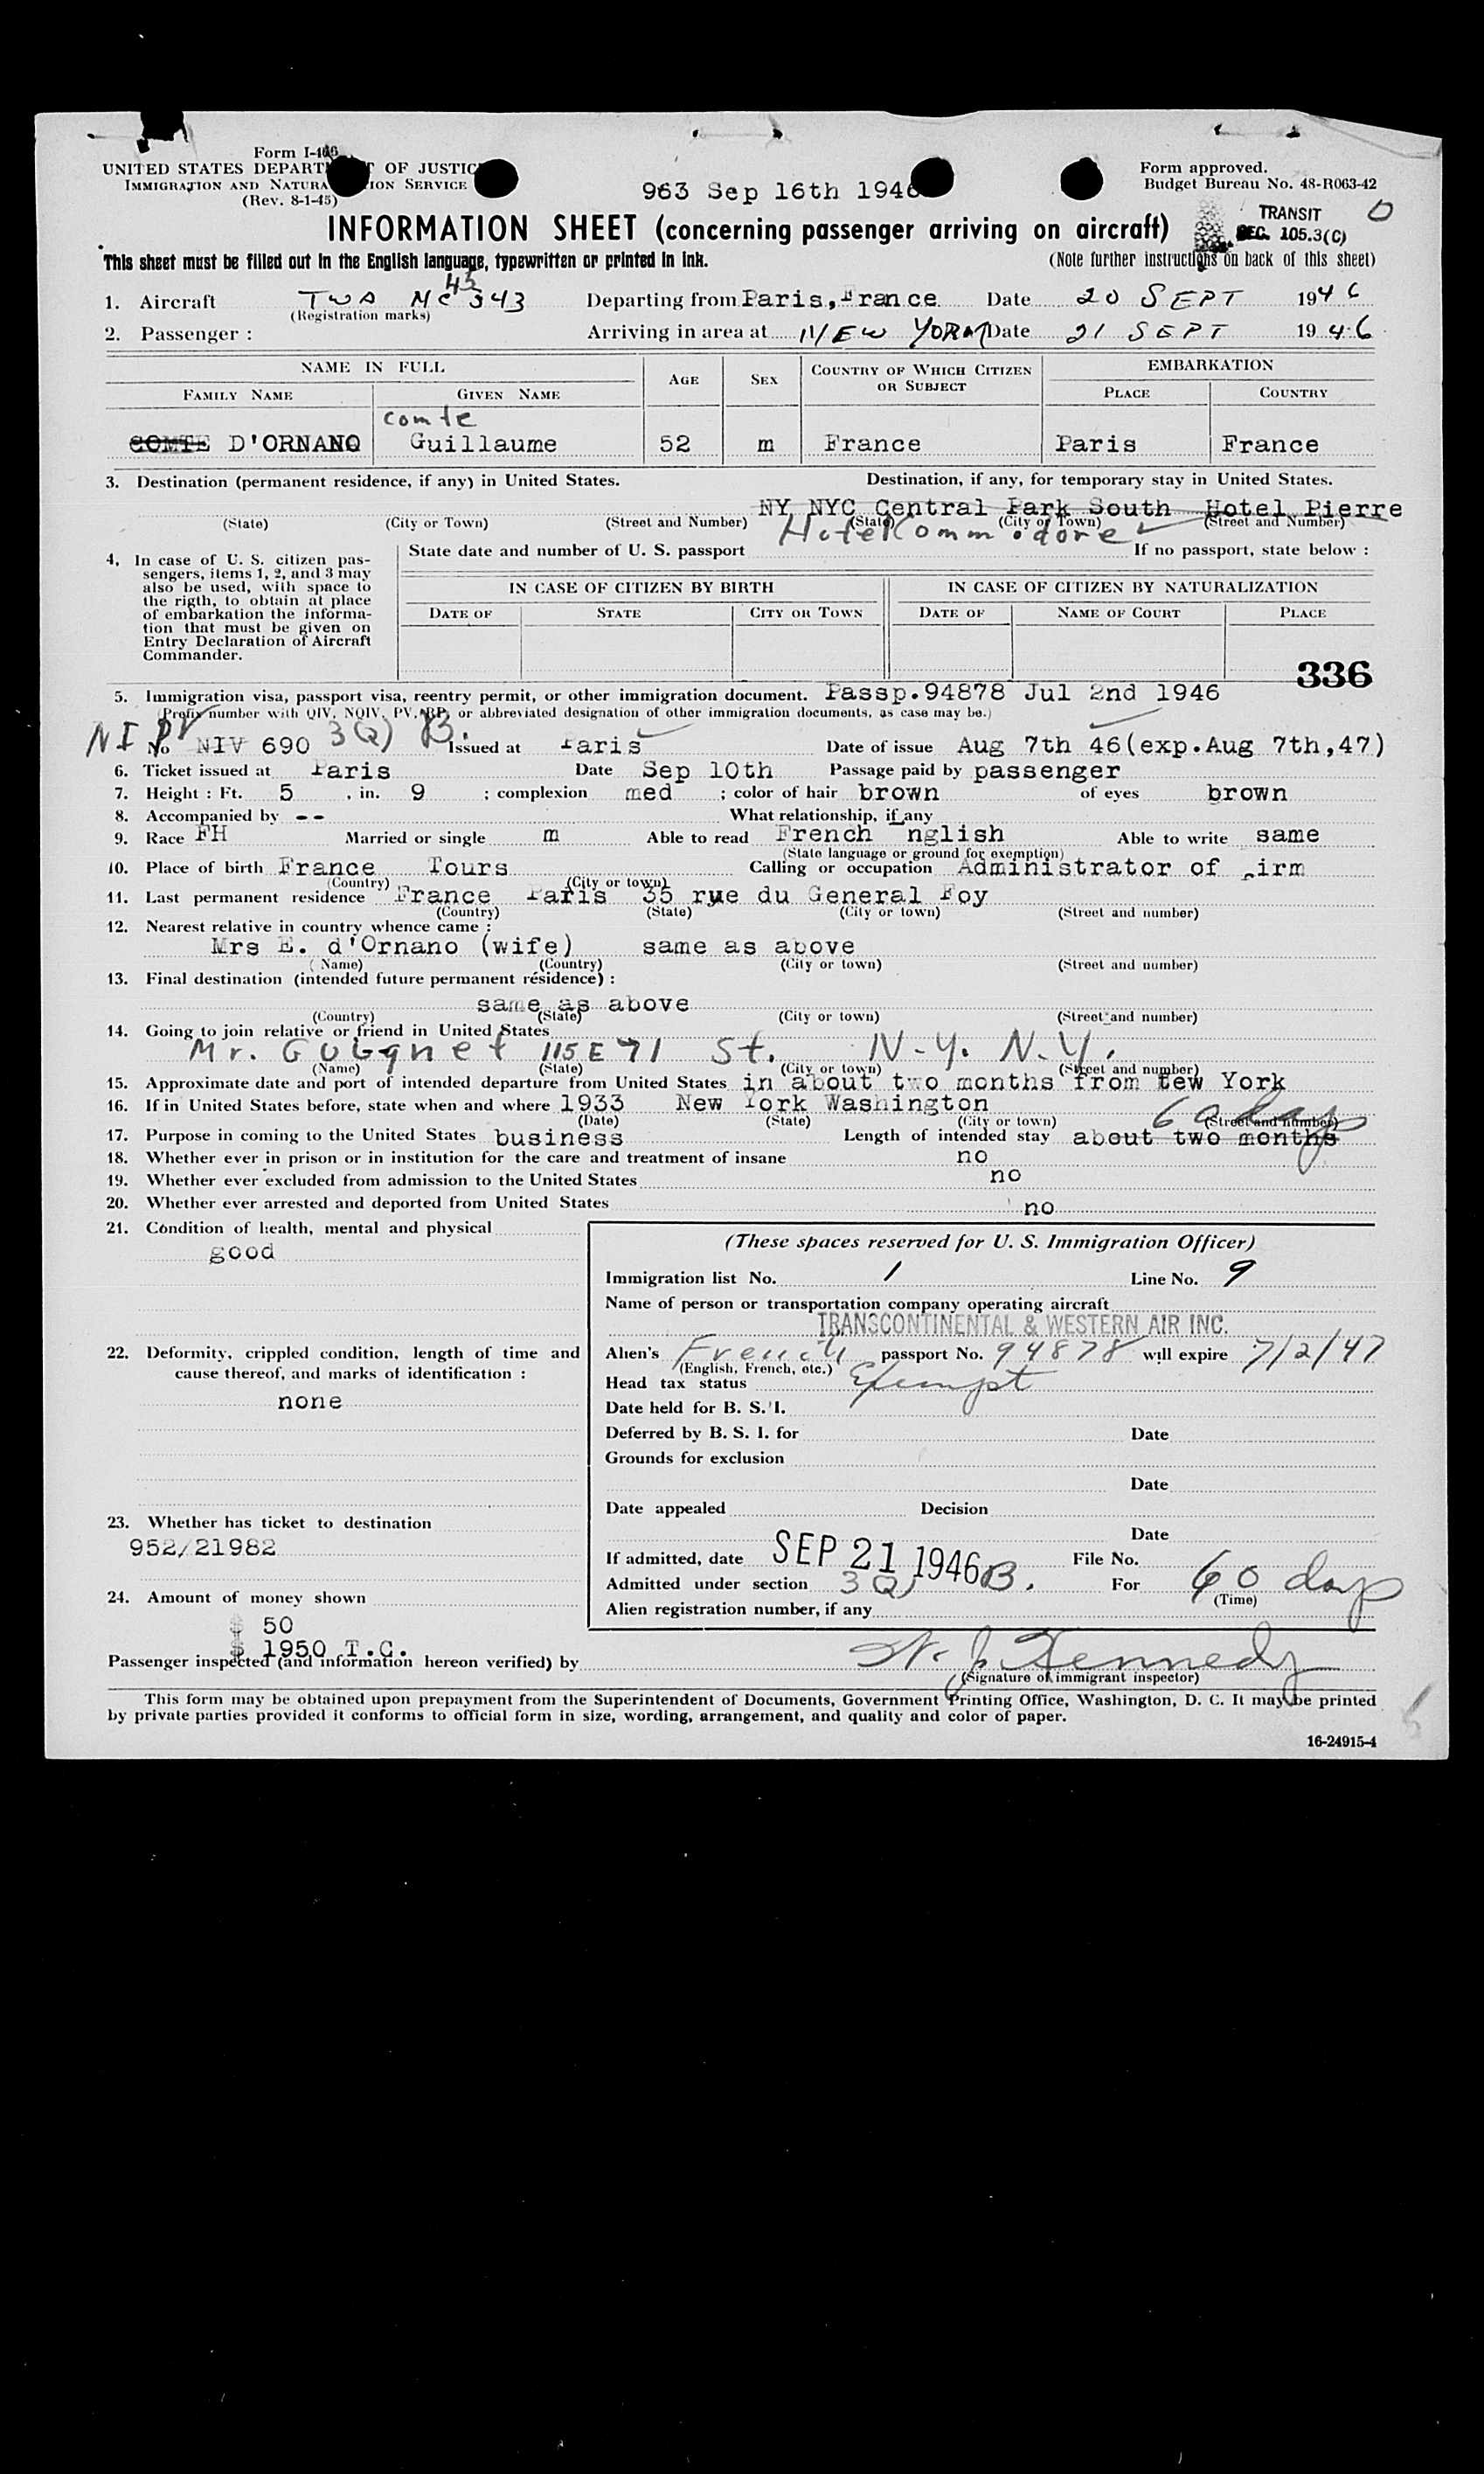 Form I-466
UNITED STATES DEPARTMENT OF JUSTICE
IMMIGRATION AND NATURALIZATION SERVICE
(Rev. 8-1-45)
963 Sep 16th 1946
Form approved.
Budget Bureau No. 48-R063-42
INFORMATION SHEET (concerning passenger arriving on aircraft)
TRANSIT 0
SEC. 105.3(C)
This sheet must be filled out in the English language, typewritten or printed in ink.
(Note further instructions on back of this sheet)
1. Aircraft TWA NC 343 Departing from Paris, France Date 20 SEPT 1946
43
(Registration marks)
2. Passenger : Arriving in area at NEW YORK Date 21 SEPT 1946
NAME IN FULL AGE SEX COUNTRY OF WHICH CITIZEN OR SUBJECT EMBARKATION
FAMILY NAME GIVEN NAME PLACE COUNTRY
comte
COMTE D'ORNANO Guillaume 52 m France Paris France
3. Destination (permanent residence, if any) in United States. Destination, if any, for temporary stay in United States.
NY NYC Central Park South Hotel Pierre
(State) (City or Town) (Street and Number) (State) (City or Town) (Street and Number)
Hotel Commodore
4. In case of U. S. citizen pas-
sengers, items 1, 2, and 3 may
also be used, with space to
the rigth, to obtain at place
of embarkation the informa-
tion that must be given on
Entry Declaration of Aircraft
Commander.
State date and number of U. S. passport If no passport, state below :
IN CASE OF CITIZEN BY BIRTH IN CASE OF CITIZEN BY NATURALIZATION
DATE OF STATE CITY OR TOWN DATE OF NAME OF COURT PLACE
336
5. Immigration visa, passport visa, reentry permit, or other immigration document. Passp.94878 Jul 2nd 1946
(Prefix number with QIV, NQIV, PV, RP, or abbreviated designation of other immigration documents, as case may be.)
No NIV 690 3(2) B. Issued at Paris Date of issue Aug 7th 46(exp.Aug 7th,47)
6. Ticket issued at Paris Date Sep 10th Passage paid by passenger
7. Height : Ft. 5 , in. 9 ; complexion med ; color of hair brown of eyes brown
8. Accompanied by -- What relationship, if any
9. Race FH Married or single m Able to read French nglish Able to write same
(State language or ground for exemption)
10. Place of birth France Tours Calling or occupation Administrator of irm
(Country) (City or town)
11. Last permanent residence France Paris 35 rue du General Foy
(Country) (State) (City or town) (Street and number)
12. Nearest relative in country whence came :
Mrs E. d'Ornano (wife) same as above
(Name) (Country) (City or town) (Street and number)
13. Final destination (intended future permanent résidence) :
same as above
(Country) (State) (City or town) (Street and number)
14. Going to join relative or friend in United States
Mr. Gubqnet 115 E 71 St. N.Y. N.Y.
(Name) (State) (City or town) (Street and number)
15. Approximate date and port of intended departure from United States in about two months from New York
16. If in United States before, state when and where 1933 New York Washington
(Date) (State) (City or town) (Street and number)
60 days
17. Purpose in coming to the United States business Length of intended stay about two months
18. Whether ever in prison or in institution for the care and treatment of insane no
19. Whether ever excluded from admission to the United States no
20. Whether ever arrested and deported from United States no
21. Condition of health, mental and physical
good
22. Deformity, crippled condition, length of time and
cause thereof, and marks of identification :
none
23. Whether has ticket to destination
952/21982
24. Amount of money shown
$ 50
$ 1950 T.C.
(These spaces reserved for U. S. Immigration Officer)
Immigration list No. 1 Line No. 9
Name of person or transportation company operating aircraft
TRANSCONTINENTAL & WESTERN AIR INC.
Alien's French passport No. 94878 will expire 7/2/47
(English, French, etc.)
Head tax status Exempt
Date held for B. S. I.
Deferred by B. S. I. for Date
Grounds for exclusion
Date
Date appealed Decision
Date
If admitted, date SEP 21 1946 File No.
Admitted under section 3(2) B. For 60 days
(Time)
Alien registration number, if any
Passenger inspected (and information hereon verified) by W. J. Kennedy
(Signature of immigrant inspector)
This form may be obtained upon prepayment from the Superintendent of Documents, Government Printing Office, Washington, D. C. It may be printed
by private parties provided it conforms to official form in size, wording, arrangement, and quality and color of paper.
16-24915-4